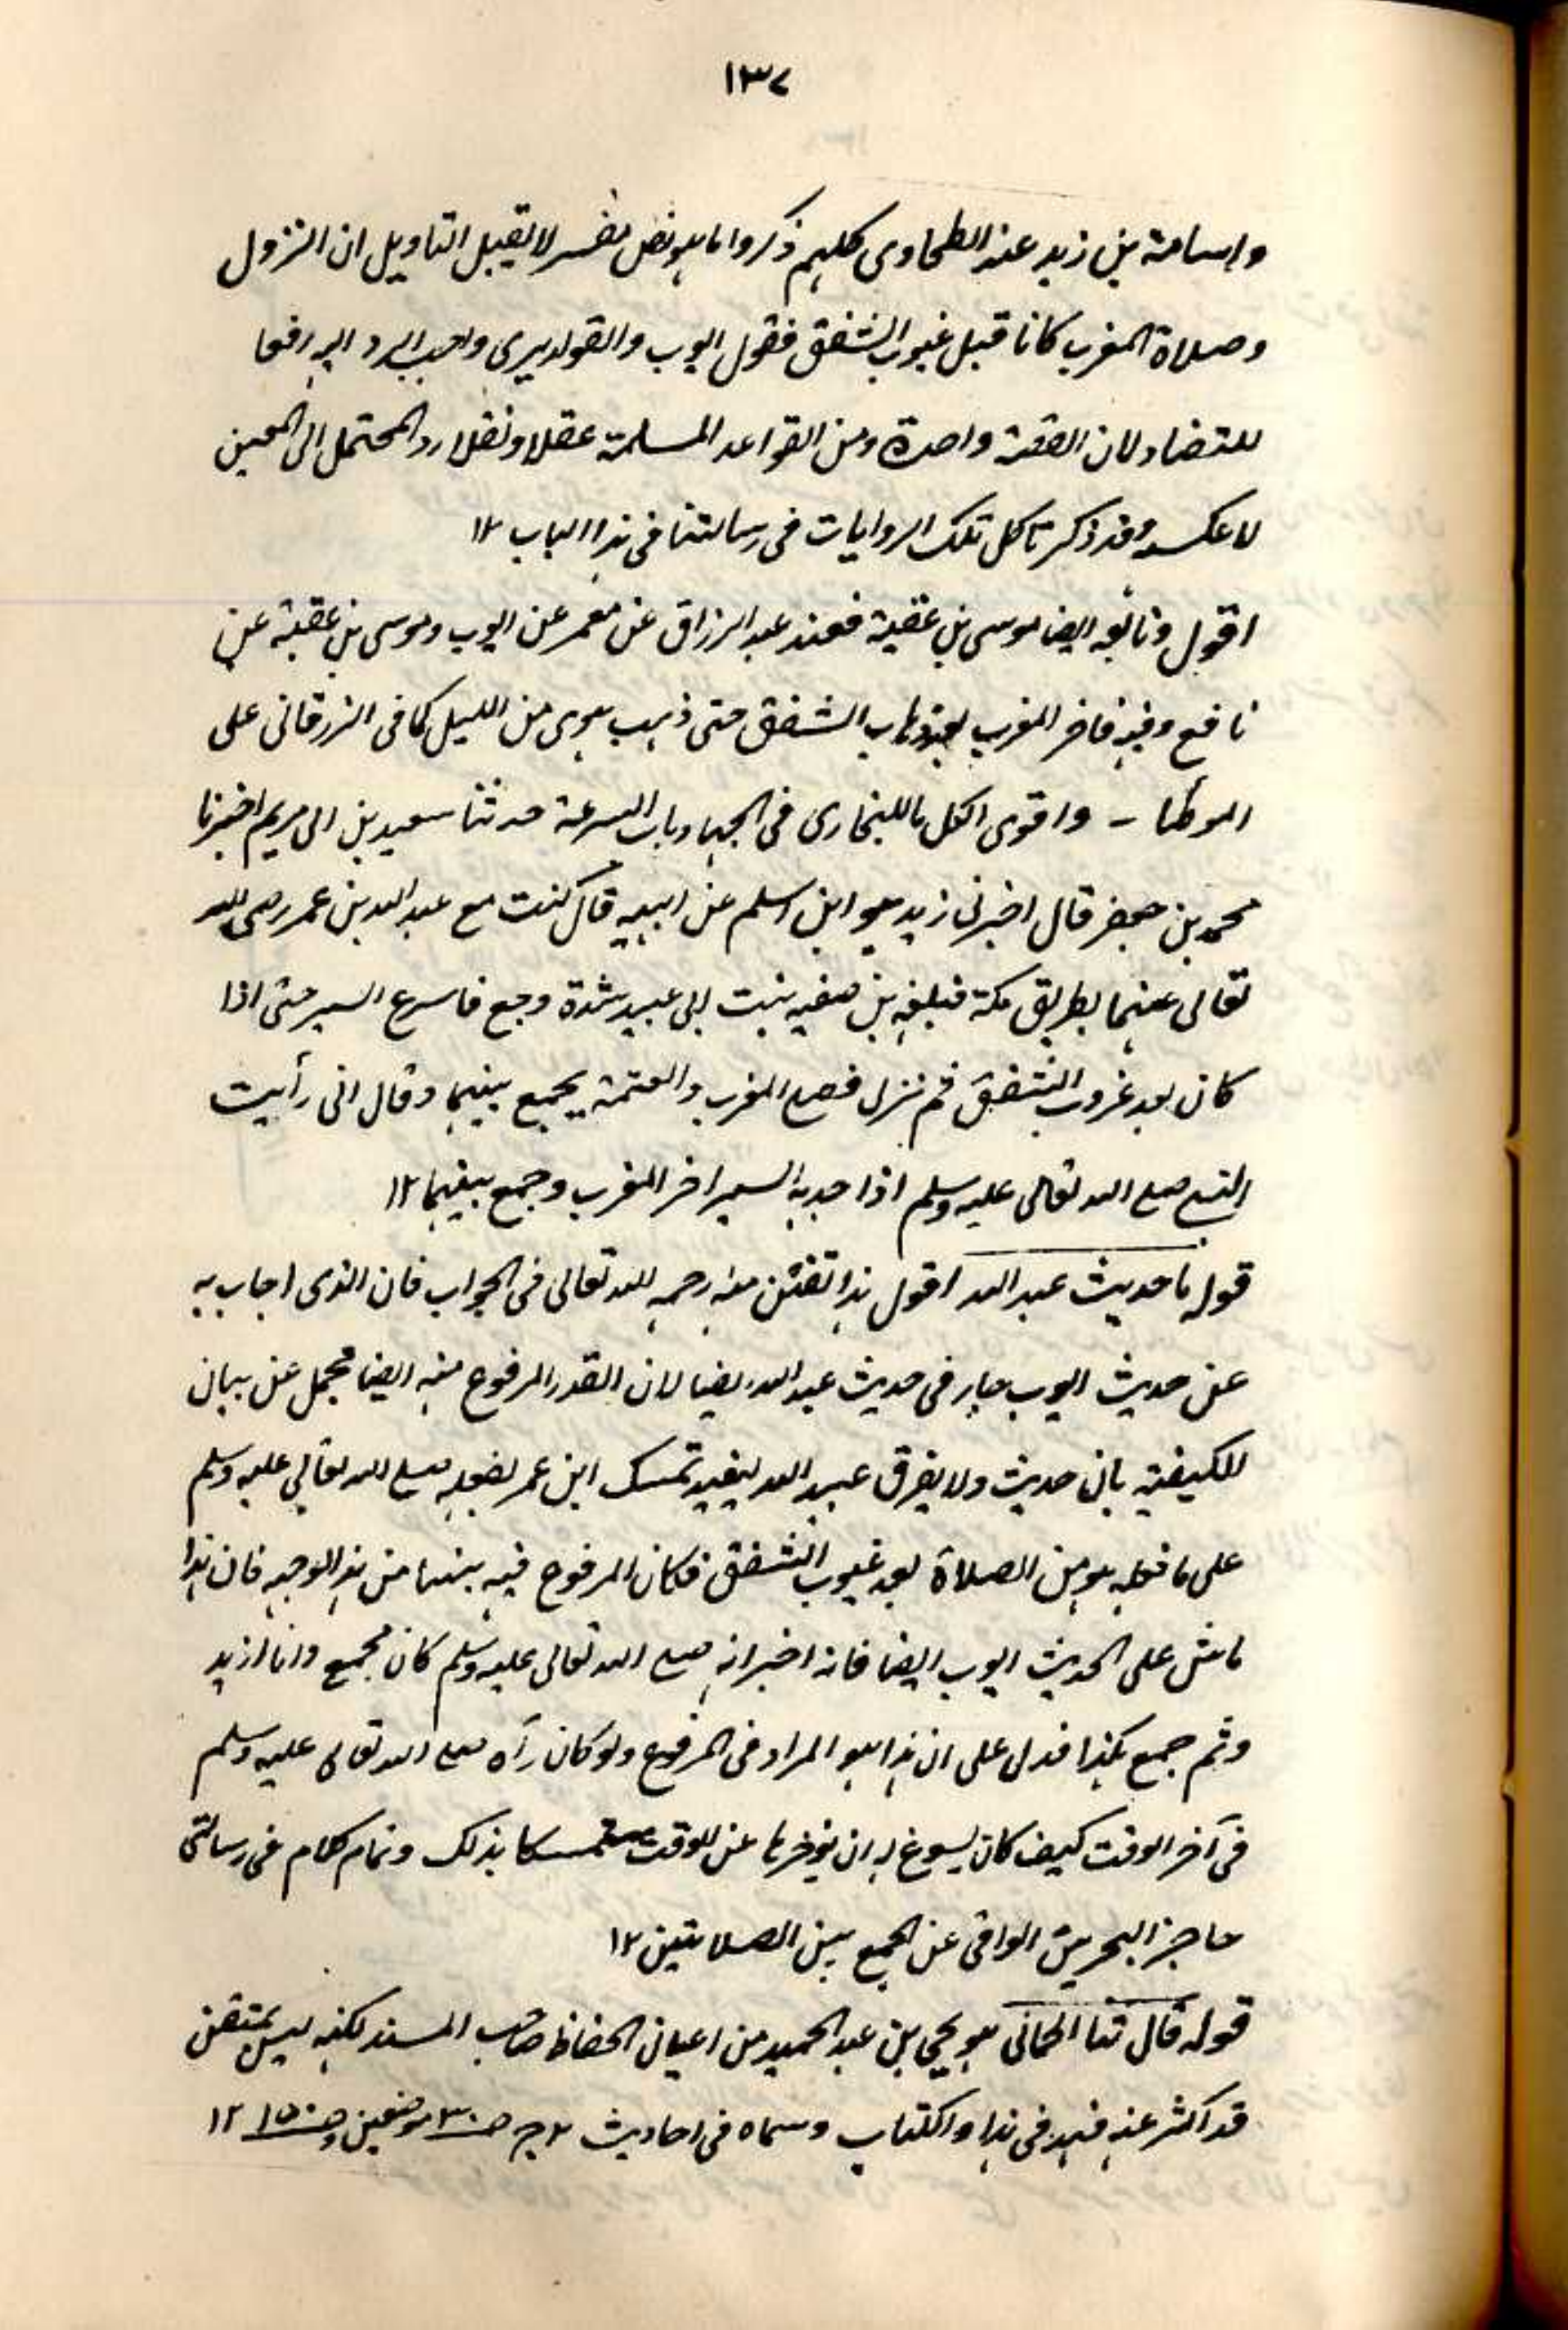 ١٣٧
واسامة بن زيد عند الطحاوى كلهم ذكروا ما هو نص مفسر لا يقبل التاويل ان النزول
وصلاة المغرب كانا قبل غيوب الشفق فقول ايوب والقول ديرى واجب الرد اليه رفعا
للتضاد لان القصة واحدة ومن القواعد المسلمة عقلا ونقلا رد المحتمل الى المعين
لا عكسه وقد ذكرنا كل تلك الروايات فى رسالتنا فى هذا الباب ١٢
اقول وتابعه ايضا موسى بن عقبة فعند عبد الرزاق عن معمر عن ايوب وموسى بن عقبة عن
نافع وفيه فاخر المغرب بعد ذهاب الشفق حتى ذهب هوى من الليل كما فى الزرقانى على
الموطأ - واقوى الكل ما للبخارى فى الجهاد باب السرعة حدثنا سعيد بن ابى مريم اخبرنا
محمد بن جعفر قال اخبرنى زيد هو ابن اسلم عن ابيه قال كنت مع عبد الله بن عمر رضى الله
تعالى عنهما بطريق مكة فبلغه بن صفيه بنت ابى عبيد شدة وجع فاسرع السير حتى اذا
كان بعد غروب الشفق ثم نزل فصلى المغرب والعتمة يجمع بينهما وقال انى رأيت
النبى صلى الله تعالى عليه وسلم اذا جد به السير اخر المغرب وجمع بينهما ١٢
قوله ما حديث عبد الله اقول هذا تفنن منه رحمه الله تعالى فى الجواب فان الذى اجاب به
عن حديث ايوب جار فى حديث عبد الله ايضا لان القدر المرفوع منه ايضا مجمل عن بيان
الكيفية بان حديث ولا يفرق عبيد الله يفيد تمسك ابن عمر بفعله صلى الله تعالى عليه وسلم
على ما فعله هو من الصلاة بعد غيوب الشفق فكان المرفوع فيه بينا من هذا الوجه فان هذا
ماش على الحديث ايوب ايضا فانه اخبر انه صلى الله تعالى عليه وسلم كان يجمع وانا ازيد
وثم جمع هكذا فدل على ان هذا هو المراد فى المرفوع ولو كان رآه صلى الله تعالى عليه وسلم
فى آخر الوقت كيف كان يسوغ له ان يؤخرها عن الوقت متمسكا بذلك وتمام كلام فى رسالتى
حاجز البحرين الواقى عن الجمع بين الصلاتين ١٢
قوله قال ثنا الحمانى هو يحيى بن عبد الحميد من اعيان الحفاظ صاحب المسند لكنه ليس بمتقن
قد اكثر عنه فهد فى هذا والكتاب وسماه فى احاديث ج٢ ص٣٠ موضعين وص١٥٠ ١٢